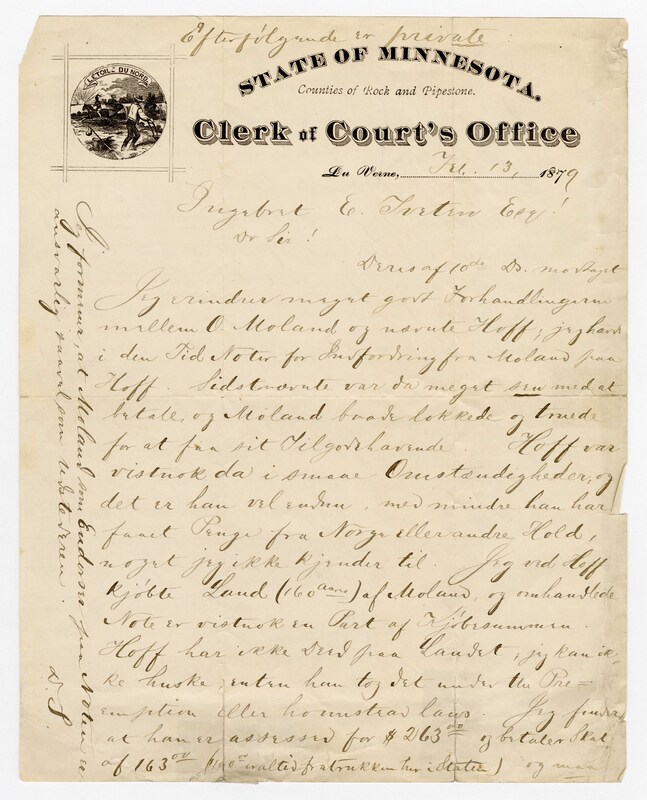 Efterfølgende er private:
L'ETOILE DU NORD
STATE OF MINNESOTA.
Counties of Rock and Pipestone.
Clerk of Court's Office
Lu Verne, Feb. 13, 1879
Ingebret E. Tveten Esq!
Dr Sir!
Deres af 10de Ds. modtaget
Jeg erindrer meget godt Forhandlingerne
mellem O. Moland og nævnte Hoff; jeg havde
i den Tid Noter for Indfordring fra Moland paa
Hoff. Sidstnævnte var da meget sen med at
betale, og Moland baade lokkede og truede
for at faa sit Tilgodehavende. Hoff var
vistnok da i smaae Omstændigheder, og
det er han vel endnu, med mindre han har
faaet Penge fra Norge eller andre Hold,
noget jeg ikke kjender til. Jeg ved Hoff
kjøbte Land (160 acres) af Moland, og omhandlede
Note er vistnok en Part af Kjøbesummen.
Hoff har ikke Deed paa Landet, jeg kan ik-
ke huske, enten han tog det under the Pre=
emption eller homestead laws. Jeg finder
at han er assessed for $263.00 og betaler Skat
af 163.00 (100.00 altid fratrukken her i Staten) og maa
Jeg formener, at Moland som Endorser paa Noten er
ansvarlig saavel som Udstederen.
D. S.